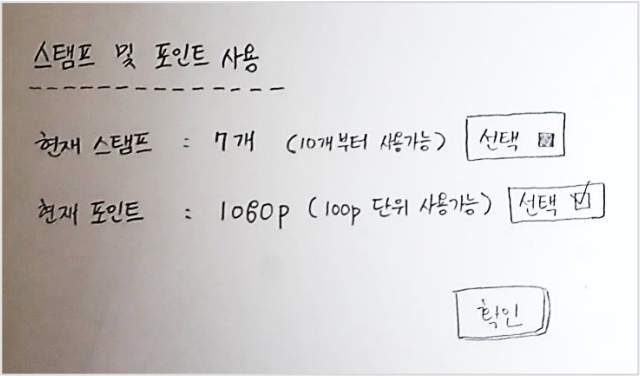 스탬프 및 포인트 사용
현재 스탬프 : 7개 (10개부터 사용가능) 선택
현재 포인트 : 1080p (100p 단위 사용가능) 선택
확인